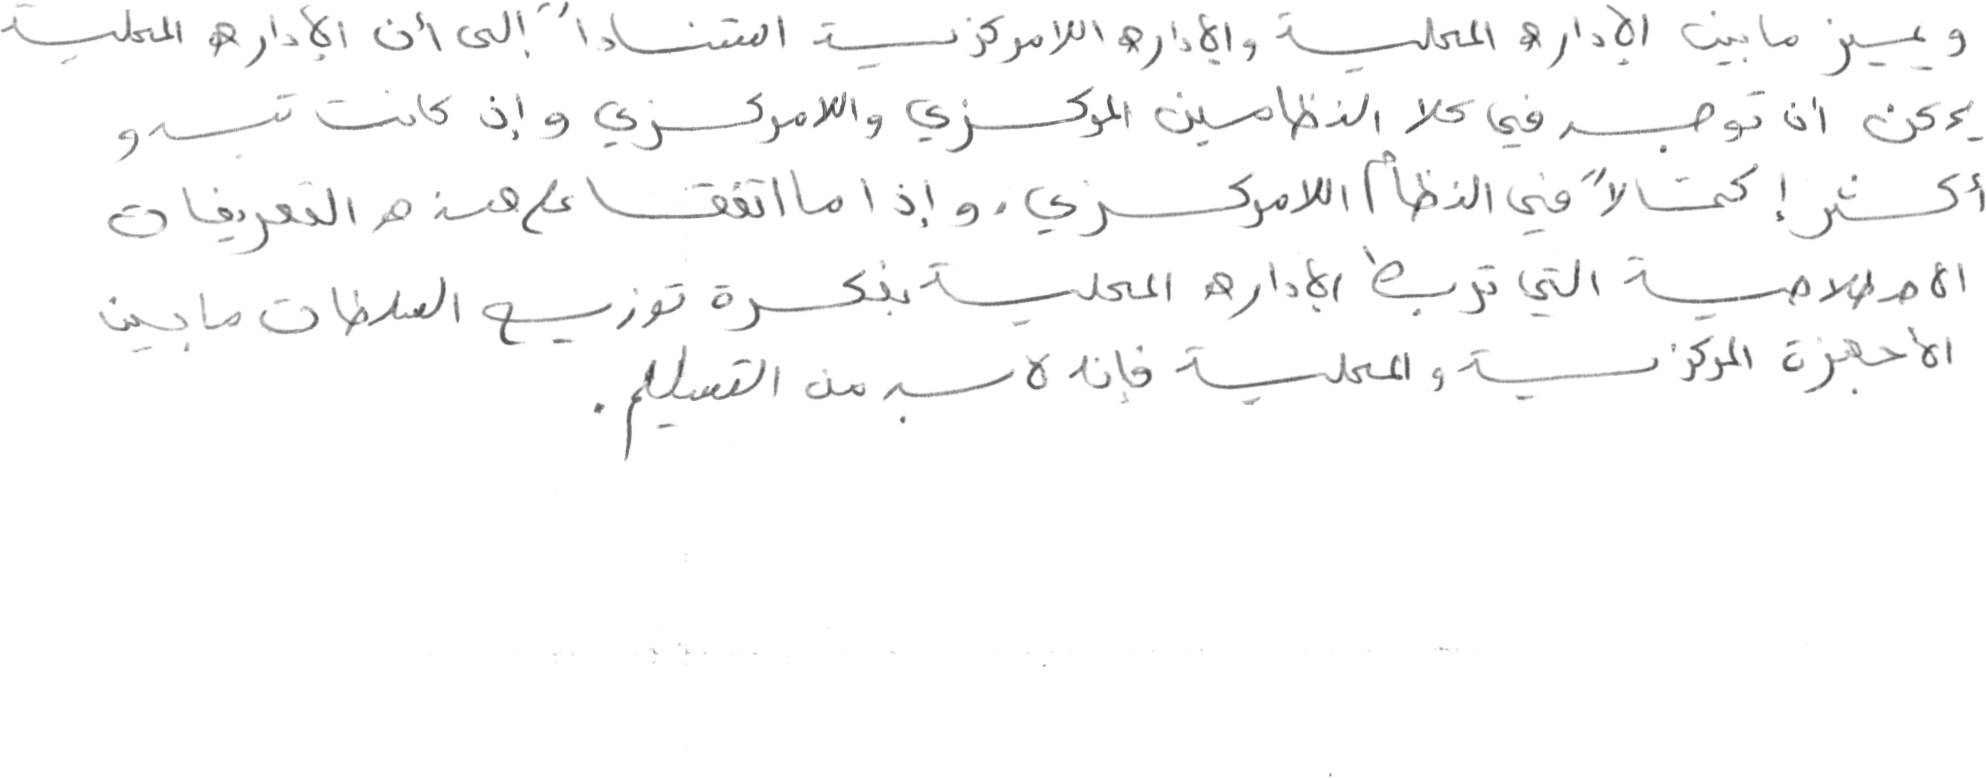 ويميز مابين الإداره المحلية والإداره اللامركزية استنادا" إلى أن الإداره المحلية
يمكن ان توجد في كلا النظامين المركزي واللامركزي وإن كانت تبدو
أكثر إكتمالا" في النظام اللامركزي، وإذا ما اتفقنا على هذه التعريفات
الاصطلاحية التي تربط الإداره المحلية بفكرة توزيع السلطات مابين
الأجهزة المركزية والمحلية فإنه لابد من التسليم.